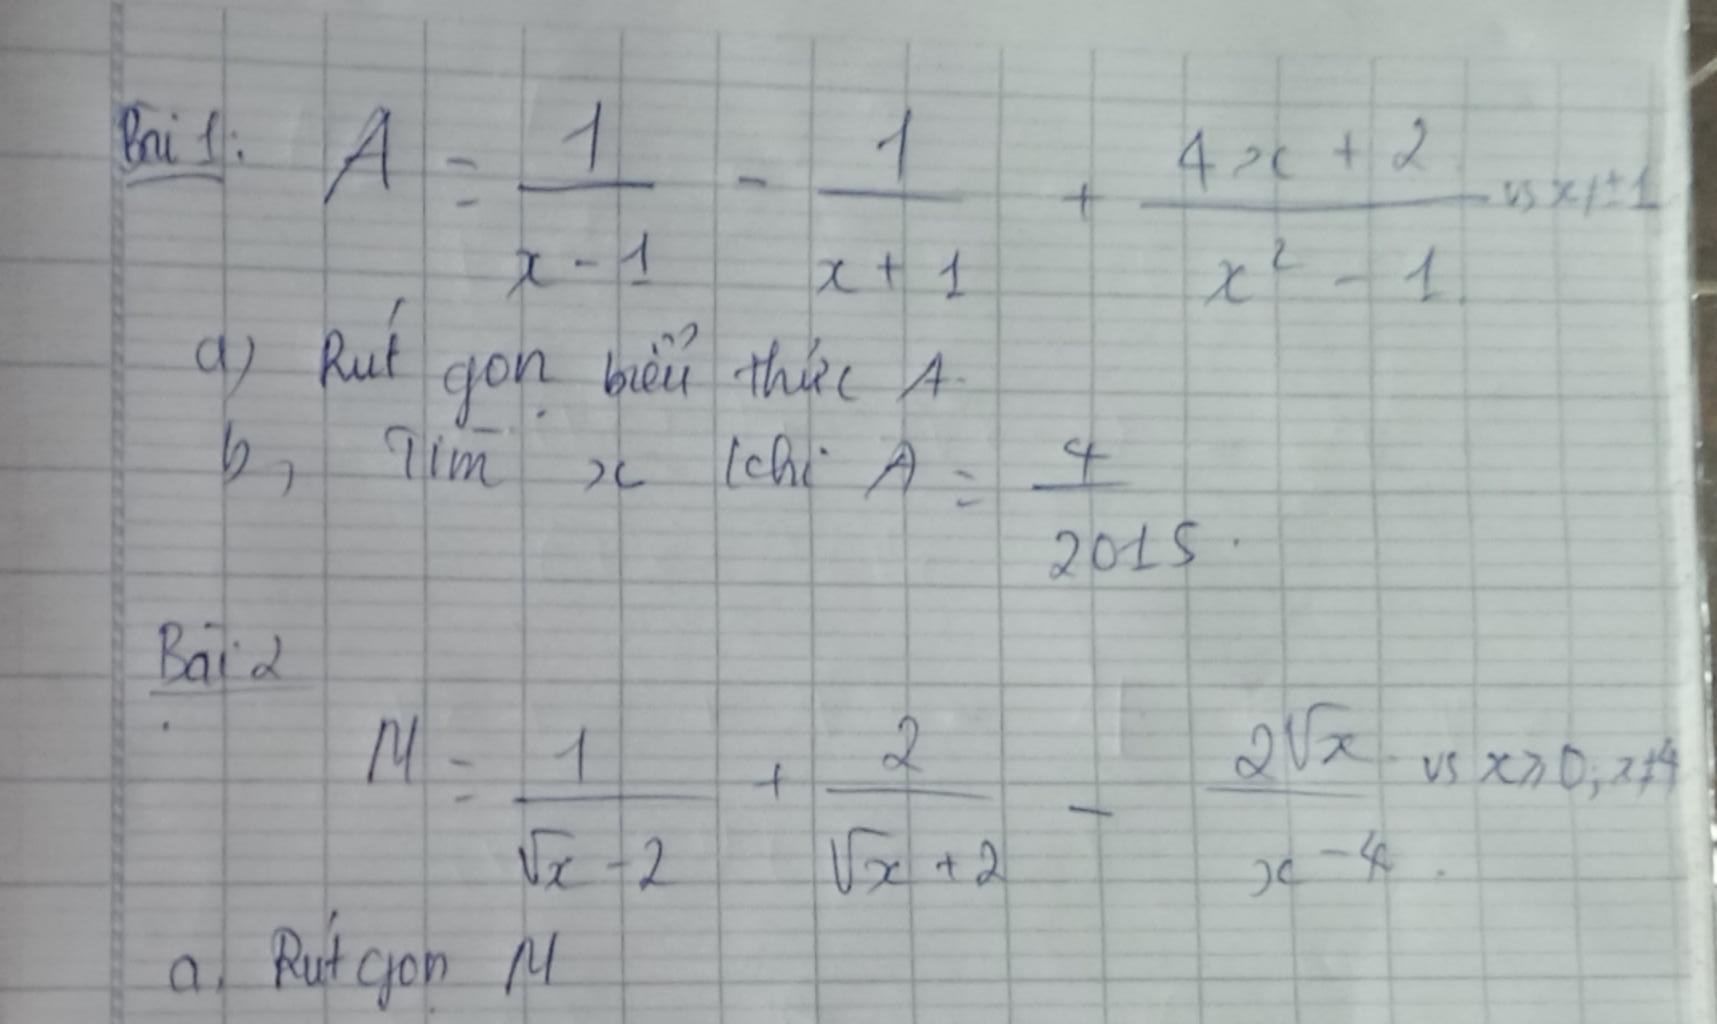 Bài 1: A = 1/(x - 1) - 1/(x + 1) + (4x + 2)/(x² - 1) vs x ≠ ±1
a) Rút gọn biểu thức A.
b, Tìm x khi A = 4/2015.
Bài 2
M = 1/(√x - 2) + 2/(√x + 2) - 2√x/(x - 4) vs x ≥ 0; x ≠ 4
a. Rút gọn M